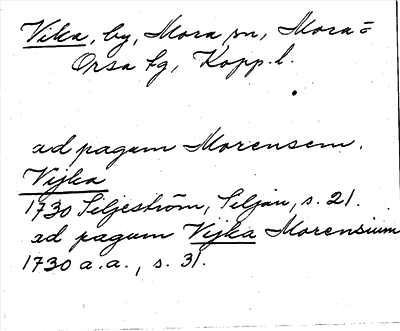 Vika, by, Mora sn, Mora o
Orsa tg, Kopp.l.
ad pagum Morensem.
Vijka
1730 Siljeström, Siljan, s. 21.
ad pagum Vijka Morensium
1730 a.a., s. 31.